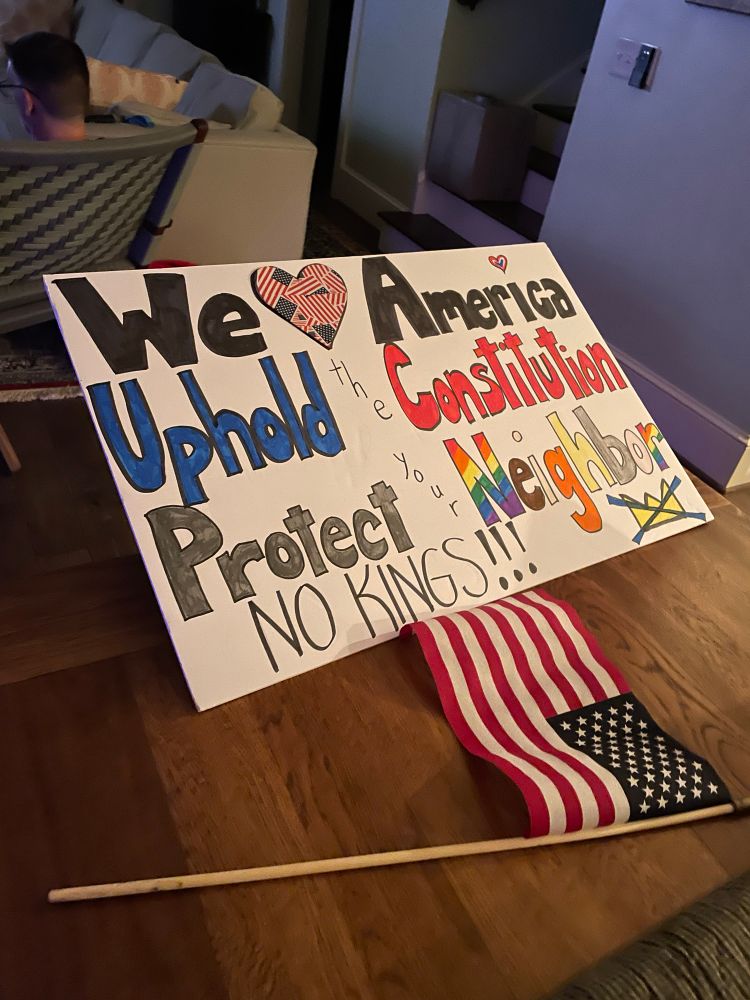 We America
Uphold the Constitution
Protect your Neighbor
NO KINGS!!!